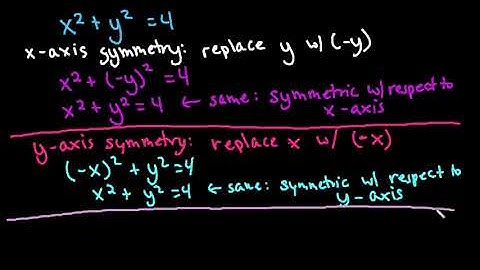 x² + y² = 4
x-axis symmetry: replace y w/ (-y)
x² + (-y)² = 4
x² + y² = 4 ← same: symmetric w/ respect to
x-axis
y-axis symmetry: replace x w/ (-x)
(-x)² + y² = 4
x² + y² = 4 ← same: symmetric w/ respect to
y-axis